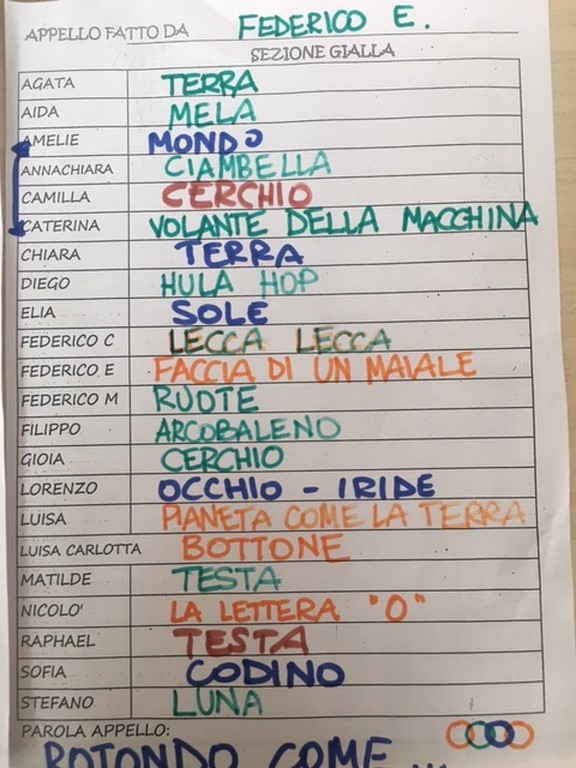 APPELLO FATTO DA FEDERICO E.
SEZIONE GIALLA
AGATA TERRA
AIDA MELA
AMELIE MONDO
ANNACHIARA CIAMBELLA
CAMILLA CERCHIO
CATERINA VOLANTE DELLA MACCHINA
CHIARA TERRA
DIEGO HULA HOP
ELIA SOLE
FEDERICO C LECCA LECCA
FEDERICO E FACCIA DI UN MAIALE
FEDERICO M RUOTE
FILIPPO ARCOBALENO
GIOIA CERCHIO
LORENZO OCCHIO - IRIDE
LUISA PIANETA COME LA TERRA
LUISA CARLOTTA BOTTONE
MATILDE TESTA
NICOLO' LA LETTERA "O"
RAPHAEL TESTA
SOFIA CODINO
STEFANO LUNA
PAROLA APPELLO:
ROTONDO COME ...